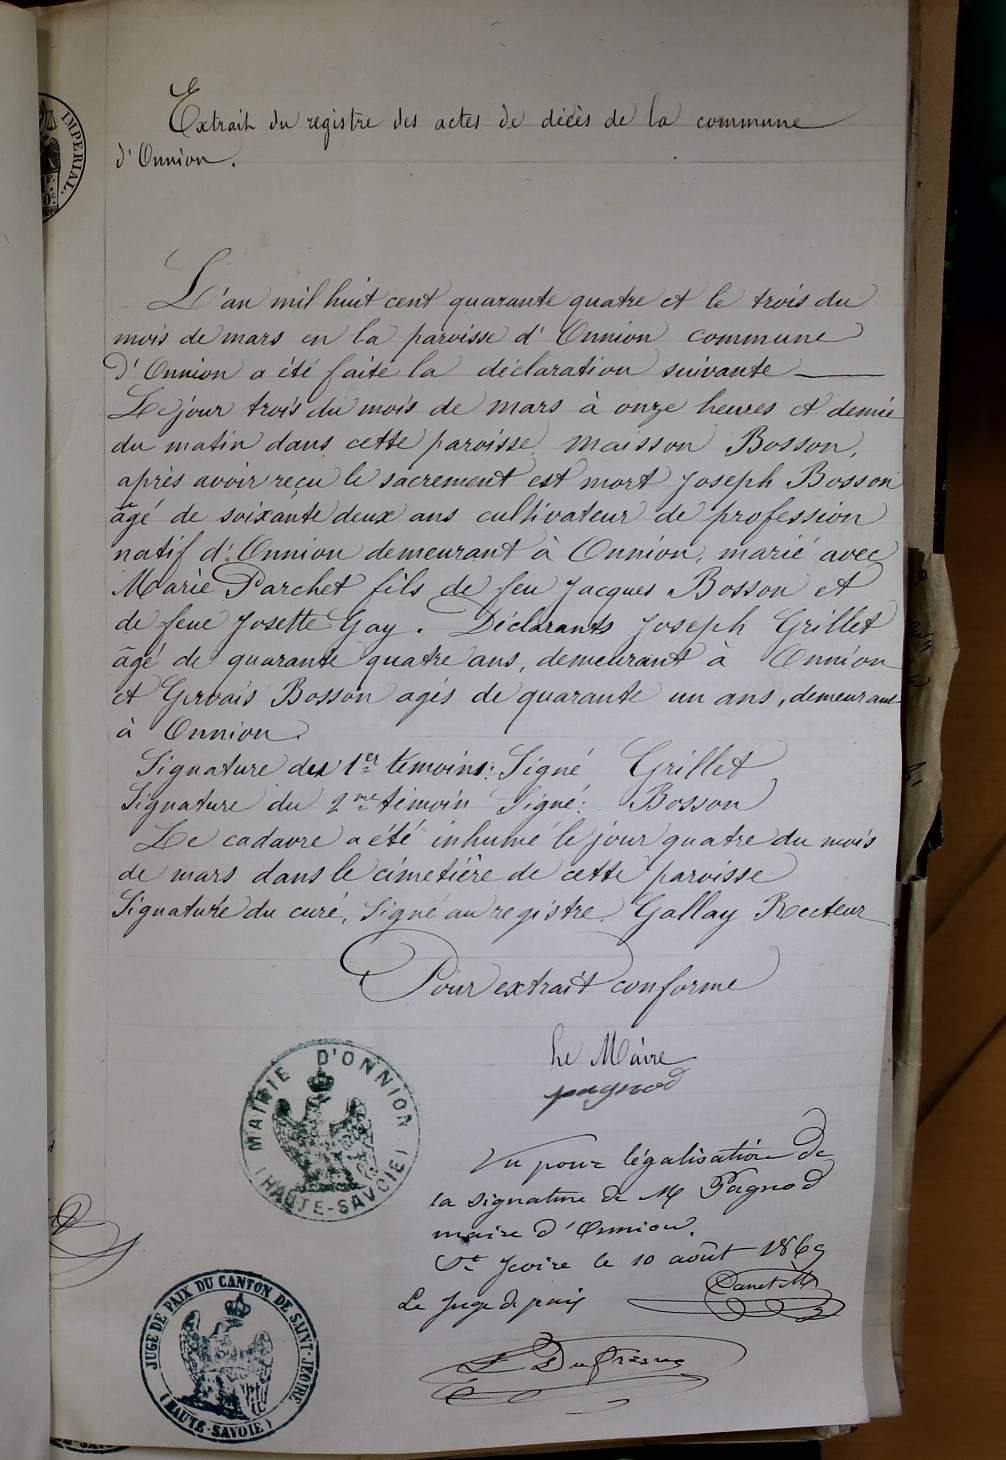 Extrait du registre des actes de décès de la commune
d'Onnion.
IMPERIAL.
L'an mil huit cent quarante quatre et le trois du
mois de mars en la paroisse d'Onnion commune
d'Onnion a été faite la déclaration suivante
Le jour trois du mois de mars à onze heures et demie
du matin dans cette paroisse maisson Bosson,
après avoir reçu le sacrement est mort Joseph Bosson
âgé de soixante deux ans cultivateur de profession
natif d'Onnion demeurant à Onnion, marié avec
Marie Parchet fils de feu Jacques Bosson et
de feue Josette Gay. Déclarants Joseph Grillet
âgé de quarante quatre ans, demeurant à Onnion
et Gervais Bosson agés de quarante un ans, demeurant
à Onnion.
Signature du 1er témoins: Signé Grillet
Signature du 2me témoin Signé: Bosson
Le cadavre a été inhumé le jour quatre du mois
de mars dans le cimetière de cette paroisse
Signature du curé, Signé au registre, Gallay Recteur
Pour extrait conforme
Le Maire
pagnod
MAIRIE D'ONNION
(HAUTE-SAVOIE)
Vu pour légalisation de
la signature de M Pagnod
maire d'Onnion.
St Jeoire le 10 août 1869
Le Juge de paix
Dufresne
JUGE DE PAIX DU CANTON DE SAINT-JEOIRE
(HAUTE-SAVOIE)